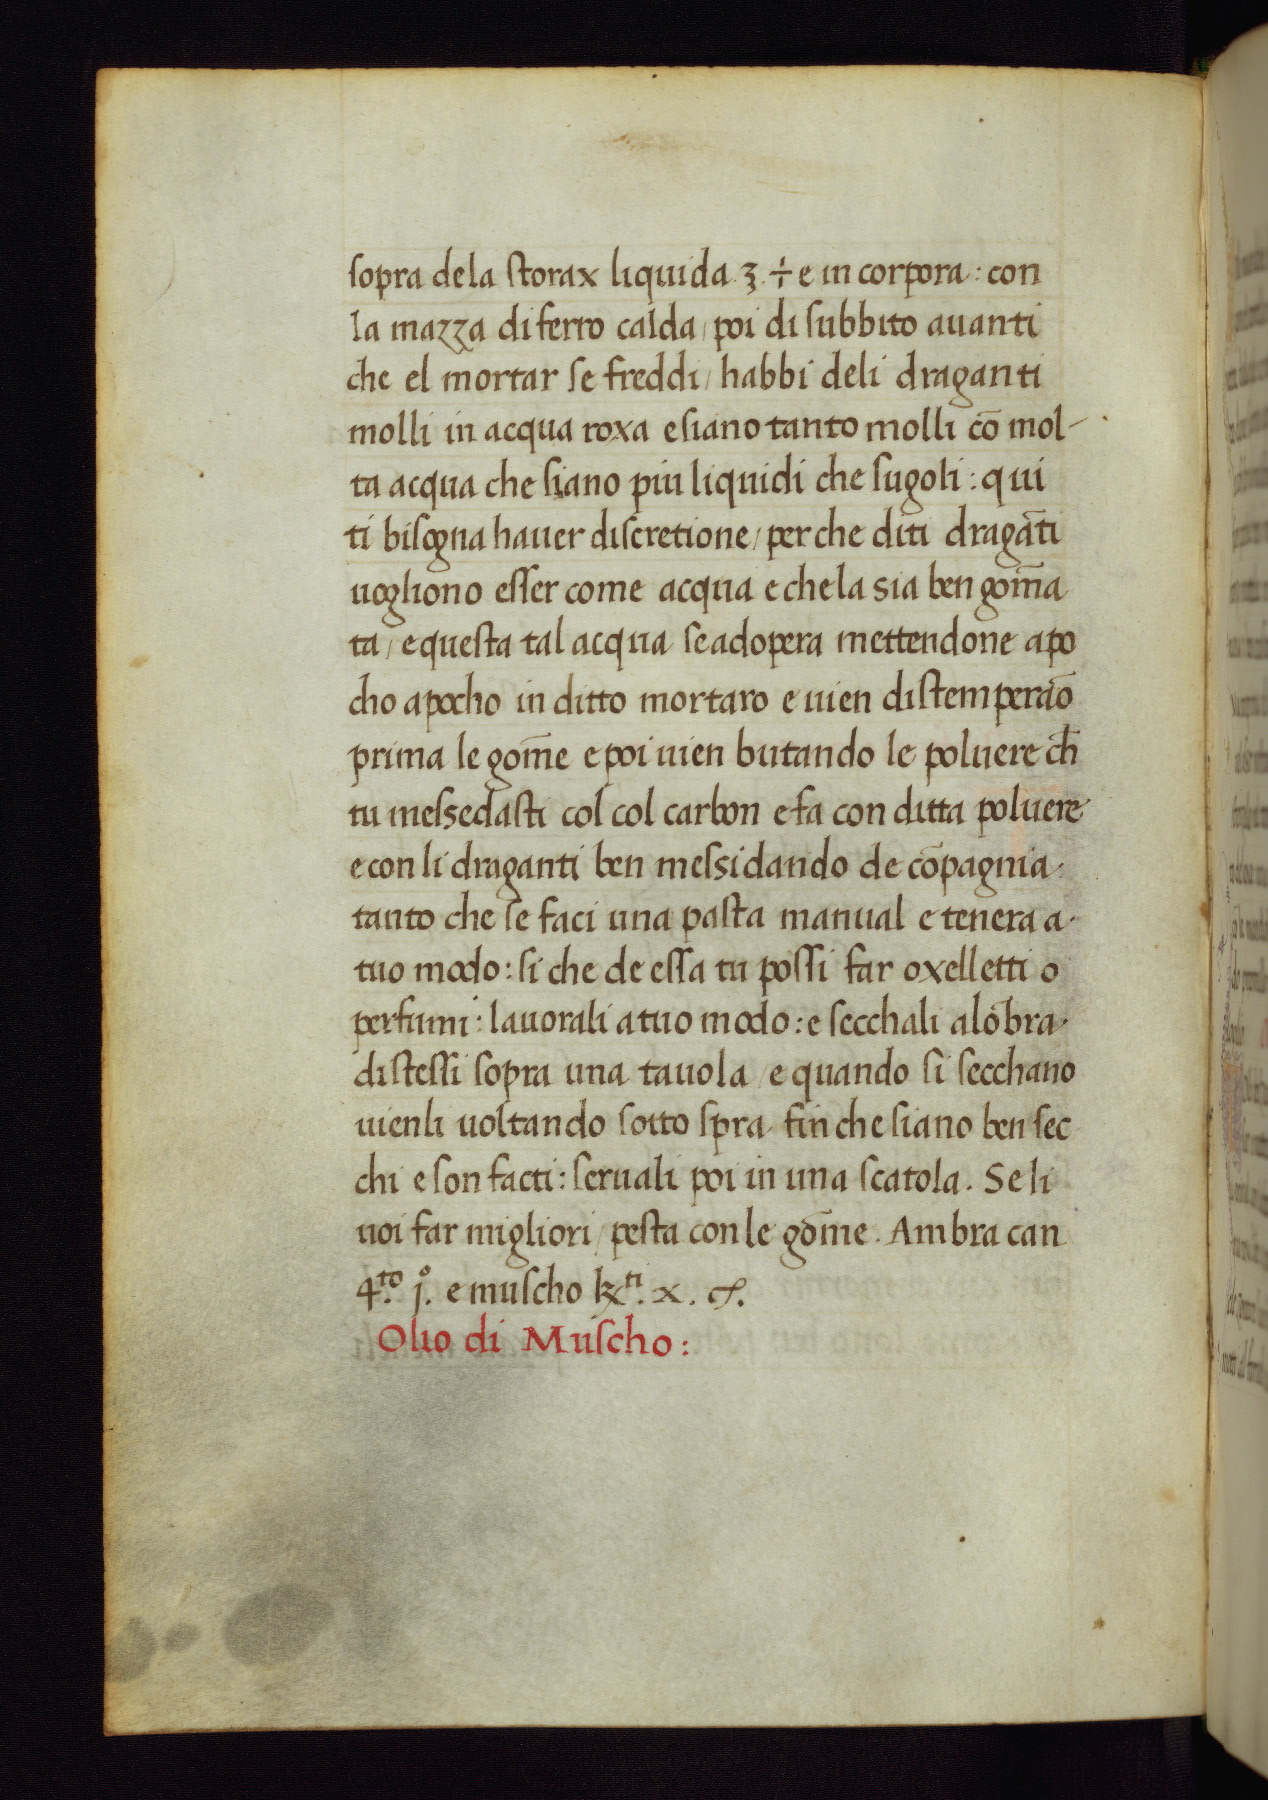 sopra dela storax liquida ʒ. ÷ e in corpora : con
la mazza di ferro calda / poi di subbito auanti
che el mortar se freddi / habbi deli draganti
molli in acqua roxa e siano tanto molli cō mol-
ta acqua che siano piu liquidi che sugoli : qui
ti bisogna hauer discretione / perche diti dragāti
uogliono esser come acqua e che la sia ben gom̄a
ta / e questa tal acqua se adopera mettendone a po
cho a pocho in ditto mortaro e uien distemperāo
prima le gom̄e e poi uien butando le poluere ch̄
tu messedasti col col carbon e fa con ditta poluere
e con li draganti ben messidando de cōpagnia
tanto che se faci una pasta manual e tenera a
tuo modo : si che de essa tu possi far oxelletti o
perfumi : lauorali a tuo modo : e secchali a lōbra
distessi sopra una tauola / e quando si secchano
uienli uoltando sotto spra fin che siano ben sec
chi e son facti : seruali poi in una scatola. Se li
uoi far migliori / pesta con le gom̄e. Ambra can
4.to j.o e muscho kti. x. &.
Olio di Muscho :